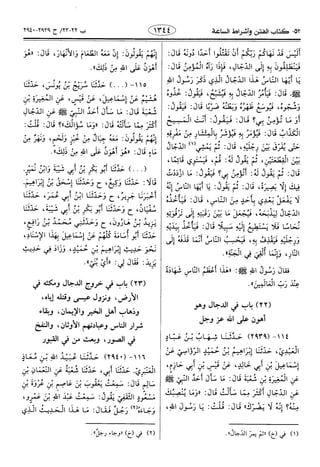 ب ٢٢-٢٣/ ح ٢٩٣٩-٢٩٤٠
١٣٤٤
٥٢- كتاب الفتن وأشراط الساعة
أَلَيْسَ قَدْ نَهَاكُمْ رَبُّكُمْ أَنْ تَقْتُلُوا أَحَدًا دُونَهُ قَالَ:
فَيَنْطَلِقُونَ بِهِ إِلَى الدَّجَّالِ، فَإِذَا رَآهُ الْمُؤْمِنُ قَالَ:
يَا أَيُّهَا النَّاسُ هَذَا الدَّجَّالُ الَّذِي ذَكَرَ رَسُولُ اللهِ
ﷺ قَالَ: فَيَأْمُرُ الدَّجَّالُ بِهِ فَيُشَبَّحُ، فَيَقُولُ: خُذُوهُ
وَشُجُّوهُ، فَيُوسَعُ ظَهْرُهُ وَبَطْنُهُ ضَرْبًا قَالَ: فَيَقُولُ:
أَوَ مَا تُؤْمِنُ بِي؟ قَالَ: فَيَقُولُ: أَنْتَ الْمَسِيحُ
الْكَذَّابُ قَالَ: فَيُؤْمَرُ بِهِ فَيُؤْشَرُ بِالْمِئْشَارِ مِنْ مَفْرِقِهِ
حَتَّى يُفَرَّقَ بَيْنَ رِجْلَيْهِ، قَالَ: ثُمَّ يَمْشِي (١) الدَّجَّالُ
بَيْنَ الْقِطْعَتَيْنِ، ثُمَّ يَقُولُ لَهُ: قُمْ، فَيَسْتَوِي قَائِمًا،
قَالَ: ثُمَّ يَقُولُ لَهُ: أَتُؤْمِنُ بِي؟ فَيَقُولُ: مَا ازْدَدْتُ
فِيكَ إِلَّا بَصِيرَةً، قَالَ: ثُمَّ يَقُولُ: يَا أَيُّهَا النَّاسُ إِنَّهُ
لَا يَفْعَلُ بَعْدِي بِأَحَدٍ مِنَ النَّاسِ، قَالَ: فَيَأْخُذُهُ
الدَّجَّالُ لِيَذْبَحَهُ، فَيُجْعَلَ مَا بَيْنَ رَقَبَتِهِ إِلَى تَرْقُوَتِهِ
نُحَاسًا فَلَا يَسْتَطِيعُ إِلَيْهِ سَبِيلًا قَالَ: فَيَأْخُذُ بِيَدَيْهِ
وَرِجْلَيْهِ فَيَقْذِفُ بِهِ، فَيَحْسِبُ النَّاسُ أَنَّمَا قَذَفَهُ إِلَى
النَّارِ، وَإِنَّمَا أُلْقِيَ فِي الْجَنَّةِ».
فقال رسول اللهِ ﷺ: «هَذَا أَعْظَمُ النَّاسِ شَهَادَةً
عِنْدَ رَبِّ الْعَالَمِينَ».
(٢٢) باب في الدجال وهو
أهون على الله عز وجل
١١٤- (٢٩٣٩) حَدَّثَنَا شِهَابُ بْنُ عَبَّادٍ
الْعَبْدِيُّ، حَدَّثَنَا إِبْرَاهِيمُ بْنُ حُمَيْدٍ الرُّؤَاسِيُّ عَنْ
إِسْمَاعِيلَ بْنِ أَبِي خَالِدٍ، عَنْ قَيْسِ بْنِ أَبِي حَازِمٍ،
عَنِ الْمُغِيرَةِ بْنِ شُعْبَةَ قَالَ: مَا سَأَلَ أَحَدٌ النَّبِيَّ ﷺ
عَنِ الدَّجَّالِ أَكْثَرَ مِمَّا سَأَلْتُ قَالَ: «وَمَا يُنْصِبُكَ
مِنْهُ؟ إِنَّهُ لَا يَضُرُّكَ» قَالَ: قُلْتُ: يَا رَسُولَ اللهِ،
(١) في (خ) «ثم يمرّ الدجّال».
إِنَّهُمْ يَقُولُونَ: إِنَّ مَعَهُ الطَّعَامَ وَالْأَنْهَارَ، قَالَ: «هُوَ
أَهْوَنُ عَلَى اللهِ مِنْ ذَلِكَ».
١١٥- (...) حَدَّثَنَا سُرَيْجُ بْنُ يُونُسَ، حَدَّثَنَا
هُشَيْمٌ عَنْ إِسْمَاعِيلَ، عَنْ قَيْسٍ، عَنِ الْمُغِيرَةِ بْنِ
شُعْبَةَ قَالَ: مَا سَأَلَ أَحَدٌ النَّبِيَّ ﷺ عَنِ الدَّجَّالِ
أَكْثَرَ مِمَّا سَأَلْتُهُ قَالَ: «وَمَا سُؤَالُكَ؟» قَالَ: قُلْتُ:
إِنَّهُمْ يَقُولُونَ: مَعَهُ جِبَالٌ مِنْ خُبْزٍ وَلَحْمٍ، وَنَهَرٌ مِنْ
مَاءٍ قَالَ: «هُوَ أَهْوَنُ عَلَى اللهِ مِنْ ذَلِكَ».
(...) حَدَّثَنَا أَبُو بَكْرِ بْنُ أَبِي شَيْبَةَ وَابْنُ نُمَيْرٍ.
قَالَا: حَدَّثَنَا وَكِيعٌ، ح وَحَدَّثَنَا إِسْحَقُ بْنُ إِبْرَاهِيمَ.
أَخْبَرَنَا جَرِيرٌ، ح وَحَدَّثَنَا ابْنُ أَبِي عُمَرَ، حَدَّثَنَا
سُفْيَانُ، ح وَحَدَّثَنَا أَبُو بَكْرِ بْنُ أَبِي شَيْبَةَ، حَدَّثَنَا
يَزِيدُ بْنُ هَارُونَ، ح وَحَدَّثَنِي مُحَمَّدُ بْنُ رَافِعٍ،
حَدَّثَنَا أَبُو أُسَامَةَ كُلُّهُمْ عَنْ إِسْمَاعِيلَ بِهَذَا الْإِسْنَادِ،
نَحْوَ حَدِيثِ إِبْرَاهِيمَ بْنِ حُمَيْدٍ، وَزَادَ فِي حَدِيثِ
يَزِيدَ: فَقَالَ لِي: «أَيْ بُنَيَّ».
(٢٣) باب في خروج الدجال ومكثه في
الأرض، ونزول عيسى وقتله إياه،
وذهاب أهل الخير والإيمان، وبقاء
شرار الناس وعبادتهم الأوثان، والنفخ
في الصور، وبعث من في القبور
١١٦- (٢٩٤٠) حَدَّثَنَا عُبَيْدُ اللهِ بْنُ مُعَاذٍ
الْعَنْبَرِيُّ، حَدَّثَنَا أَبِي، حَدَّثَنَا شُعْبَةُ عَنِ النُّعْمَانِ بْنِ
سَالِمٍ قَالَ: سَمِعْتُ يَعْقُوبَ بْنَ عَاصِمِ بْنِ عُرْوَةَ بْنِ
مَسْعُودٍ الثَّقَفِيَّ يَقُولُ: سَمِعْتُ عَبْدَ اللهِ بْنَ عَمْرٍو،
وَجَاءَهُ (٢) رَجُلٌ فَقَالَ: مَا هَذَا الْحَدِيثُ الَّذِي
(٢) في (خ) «وجاء رجل».